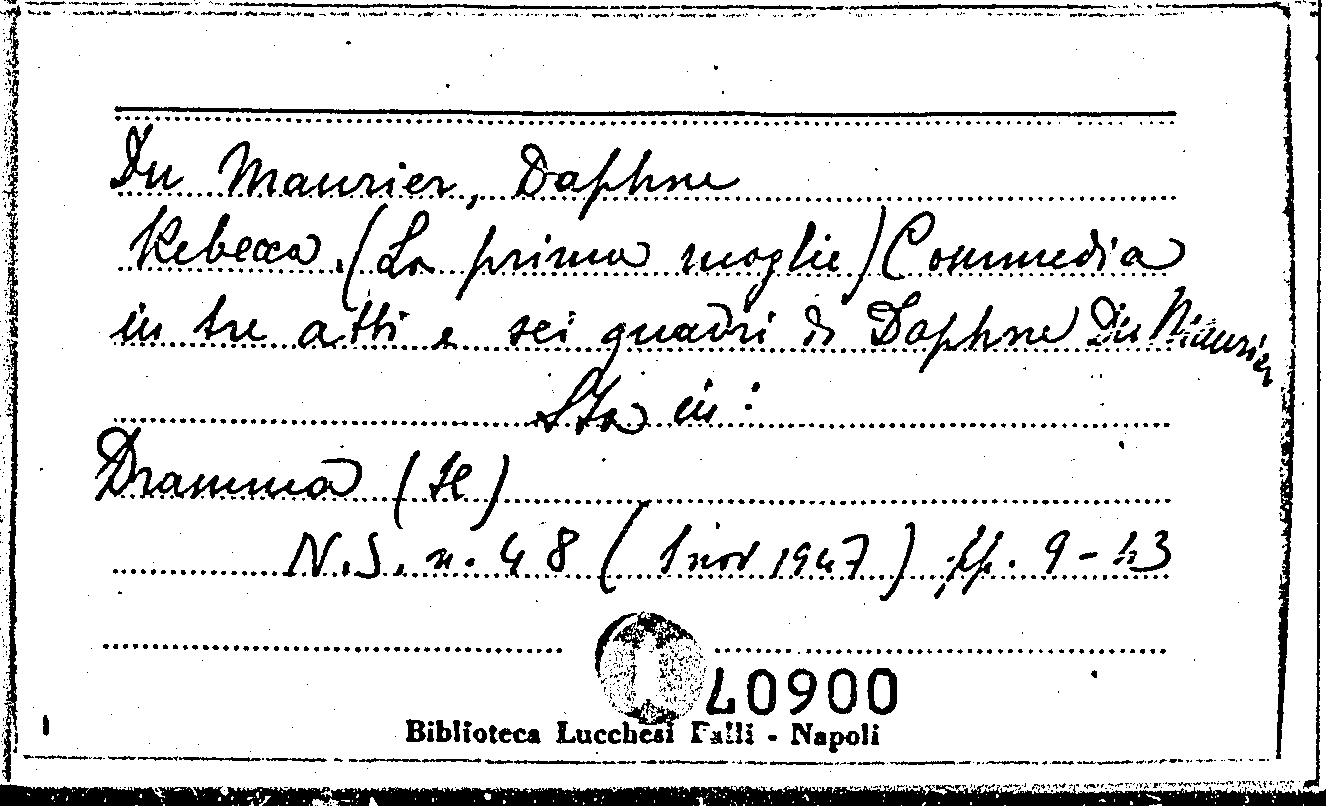 Du Maurier, Daphne
Rebecca. (La prima moglie) Commedia
in tre atti e sei quadri di Daphne Du Maurier
Sta in:
Dramma (Il)
N.S. n. 48 (1 nov 1947) pp. 9-43
40900
Biblioteca Lucchesi Palli - Napoli